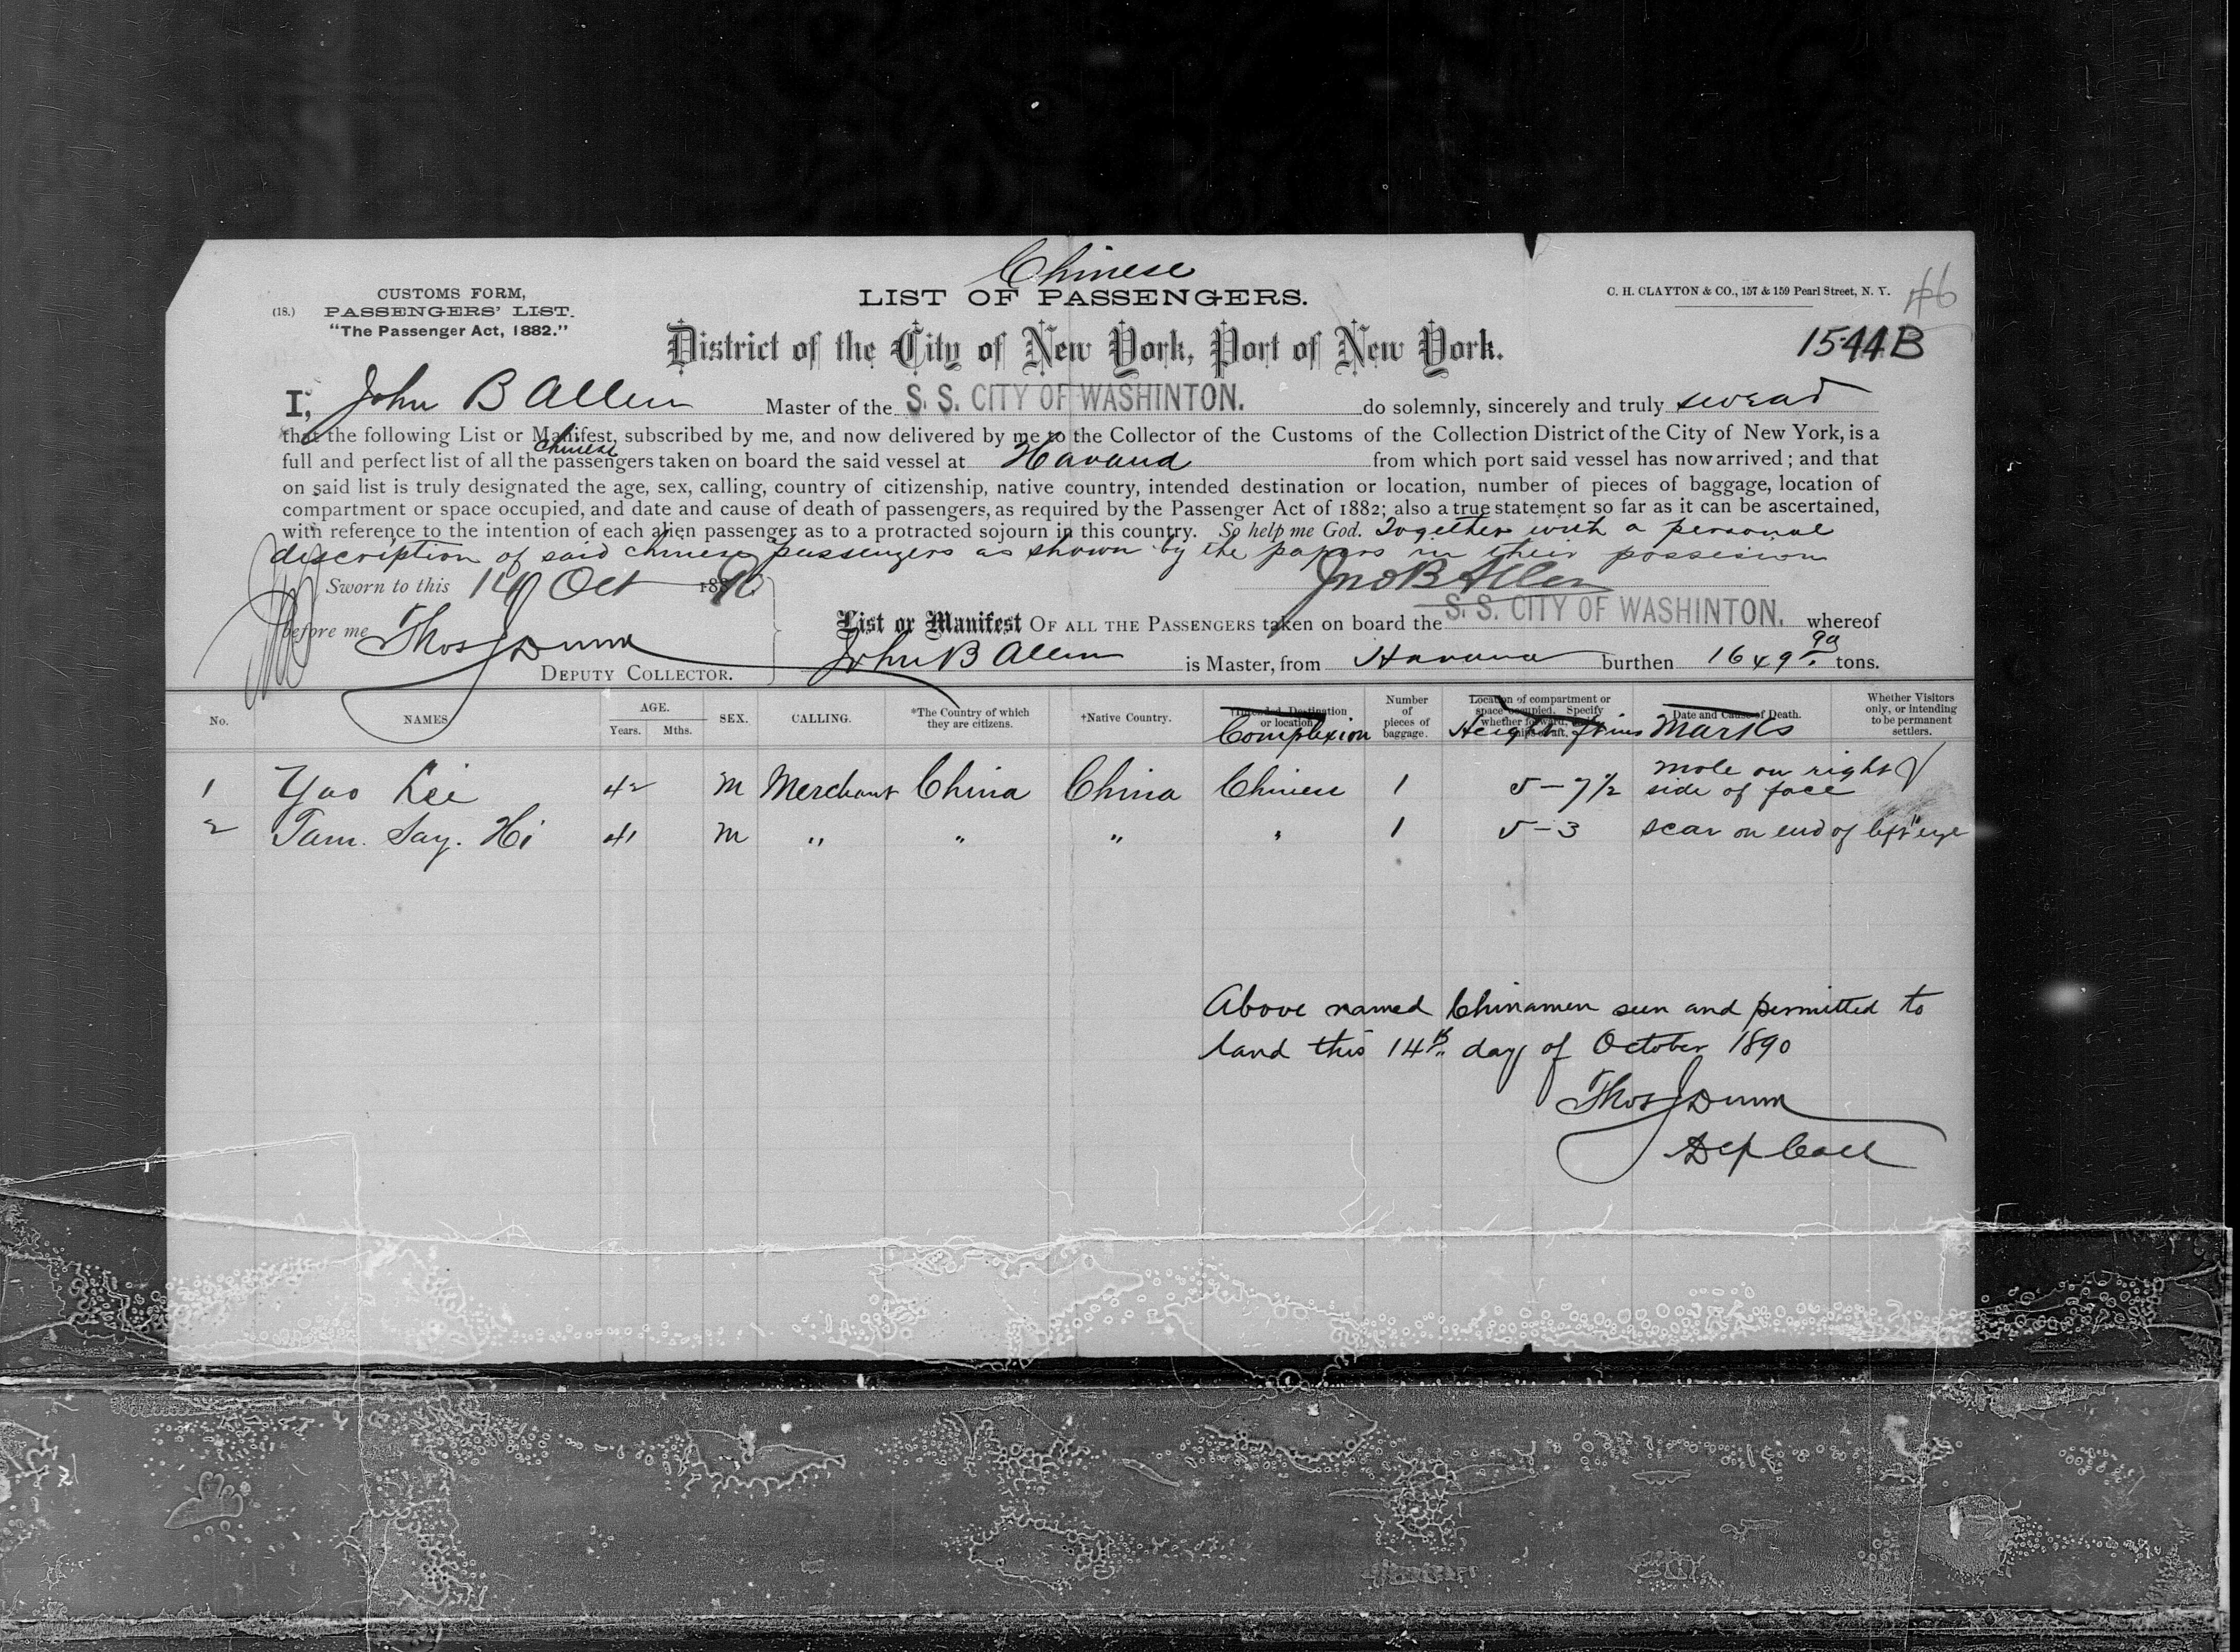 Chinese
CUSTOMS FORM,
(18.) PASSENGERS' LIST.
"The Passenger Act, 1882."
LIST OF PASSENGERS.
C. H. CLAYTON & CO., 157 & 159 Pearl Street, N. Y.
#6
1544B
District of the City of New York, Port of New York.
I, John B Allen Master of the S. S. CITY OF WASHINTON. do solemnly, sincerely and truly swear
that the following List or Manifest, subscribed by me, and now delivered by me to the Collector of the Customs of the Collection District of the City of New York, is a
full and perfect list of all the chinese passengers taken on board the said vessel at Havana from which port said vessel has now arrived; and that
on said list is truly designated the age, sex, calling, country of citizenship, native country, intended destination or location, number of pieces of baggage, location of
compartment or space occupied, and date and cause of death of passengers, as required by the Passenger Act of 1882; also a true statement so far as it can be ascertained,
with reference to the intention of each alien passenger as to a protracted sojourn in this country. So help me God. Together with a personal
description of said chinese passengers as shown by the papers in their possession
Sworn to this 14 Oct 1890
Jno B Allen
before me Thos J Dunn
DEPUTY COLLECTOR.
List or Manifest OF ALL THE PASSENGERS taken on board the S. S. CITY OF WASHINTON. whereof
John B Allen is Master, from Havana burthen 1649 99 tons.
No. NAMES AGE. Years. Mths. SEX. CALLING. *The Country of which they are citizens. †Native Country. Intended Destination or location Complexion Number of pieces of baggage. Location of compartment or space occupied. Specify whether forward, Height Date and Cause of Death. Marks Whether Visitors only, or intending to be permanent settlers.
1 Yuo Lee 42 M Merchant China China Chinese 1 5-7½ mole on right side of face
2 Tam. Say. Hi 41 M " " " " 1 5-3 scar on end of left eye
Above named Chinamen seen and permitted to
land this 14th day of October 1890
Thos J Dunn
Dep Coll